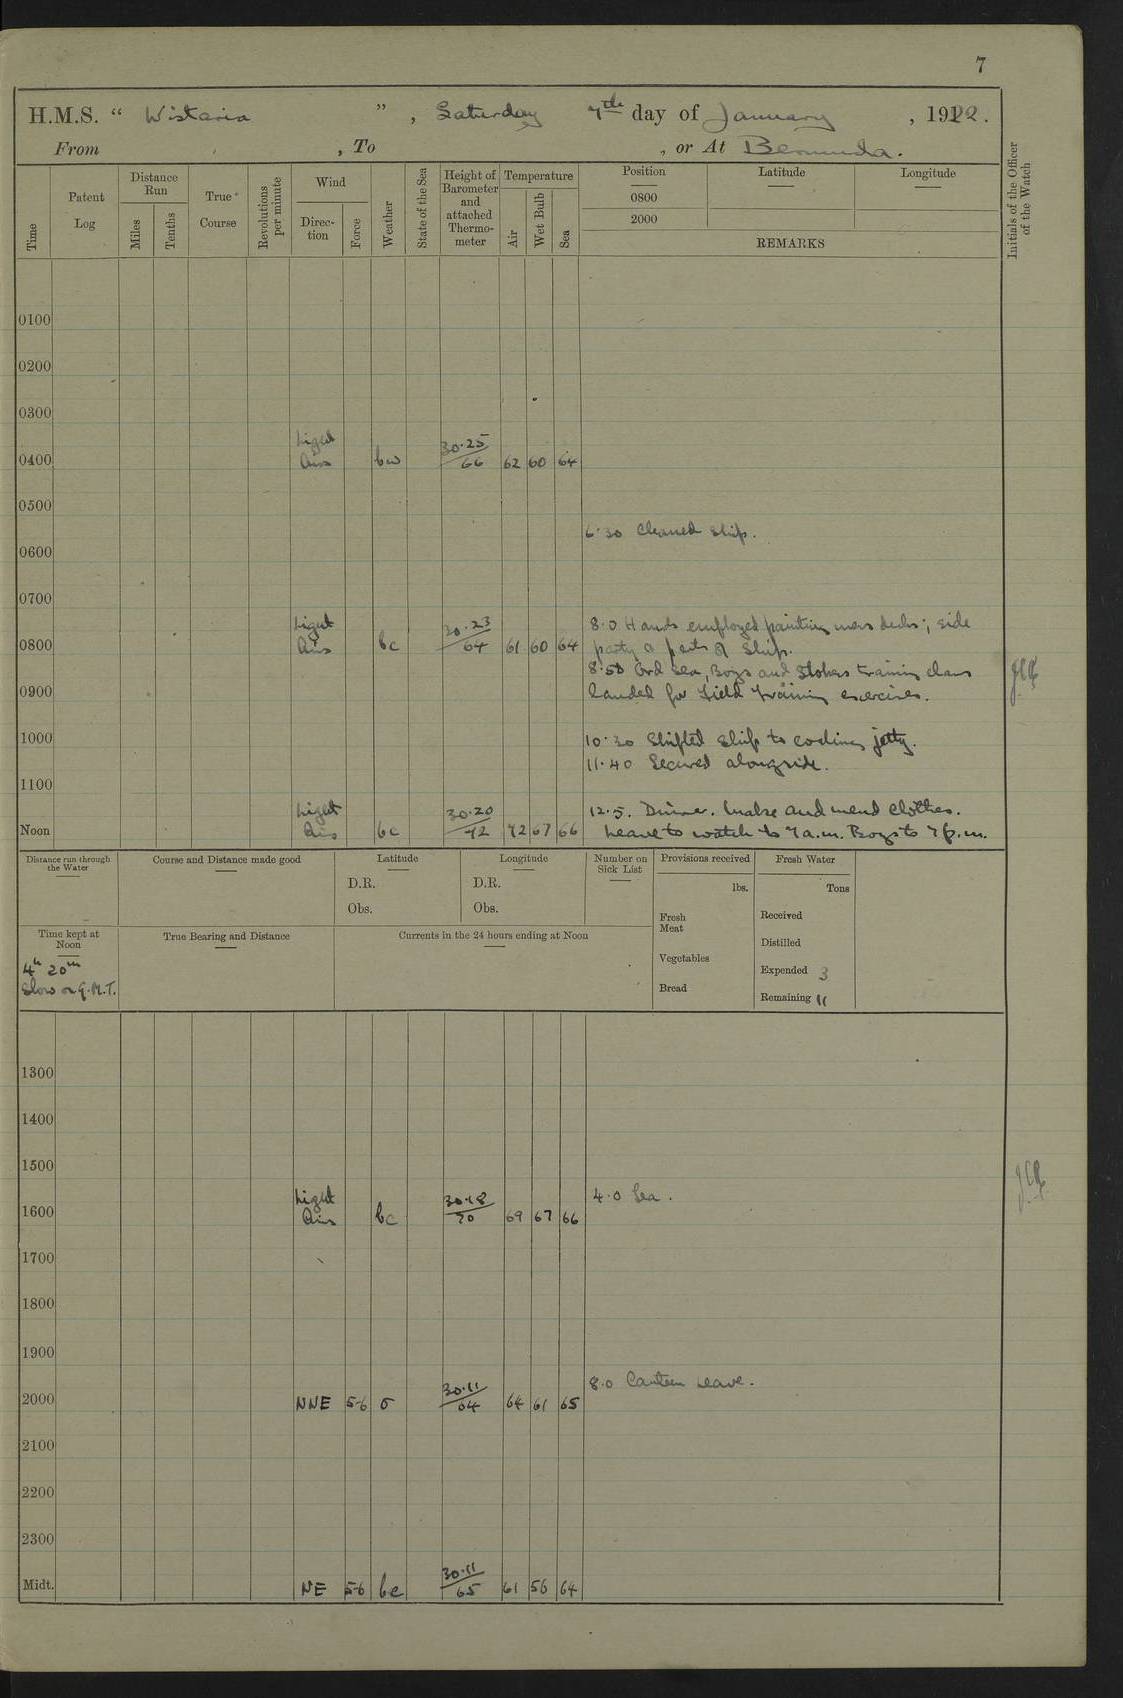 7
H.M.S. “ Wistaria ”, Saturday 7th day of January, 1922.
From , To , or At Bermuda.
Time
Patent Log
Distance Run
Miles
Tenths
True Course
Revolutions per minute
Wind
Direction
Force
Weather
State of the Sea
Height of Barometer and attached Thermometer
Temperature
Air
Wet Bulb
Sea
Position
0800
2000
Latitude
Longitude
REMARKS
Initials of the Officer of the Watch
0100
0200
0300
0400 Light Airs bw 30.25/66 62 60 64
0500
6.30 Cleaned Ship.
0600
0700
8.0 Hands employed painting mess decks; side
0800 Light Airs bc 30.23/64 61 60 64
party & parts of Ship.
8.50 Ord Sea, Boys and Stokers training class
0900
landed for Field training exercises.
1000
10.30 Shifted Ship to coaling jetty.
11.40 Secured alongside.
1100
12.5. Dinner. Make and mend clothes.
Noon Light Airs bc 30.20/72 72 67 66
Leave to watch to 7 a.m. Boys to 7 p.m.
Distance run through the Water
Course and Distance made good
Latitude
D.R.
Obs.
Longitude
D.R.
Obs.
Number on Sick List
Provisions received
lbs.
Fresh Meat
Vegetables
Bread
Fresh Water
Tons
Received
Distilled
Expended 3
Remaining 11
Time kept at Noon
4h 20m
Slow on G.M.T.
True Bearing and Distance
Currents in the 24 hours ending at Noon
1300
1400
1500
4.0 Tea.
1600 Light Airs bc 30.18/70 69 67 66
1700
1800
1900
8.0 Canteen Leave.
2000 NNE 5-6 o 30.11/64 64 61 65
2100
2200
2300
Midt. NE 5-6 bc 30.11/65 61 56 64